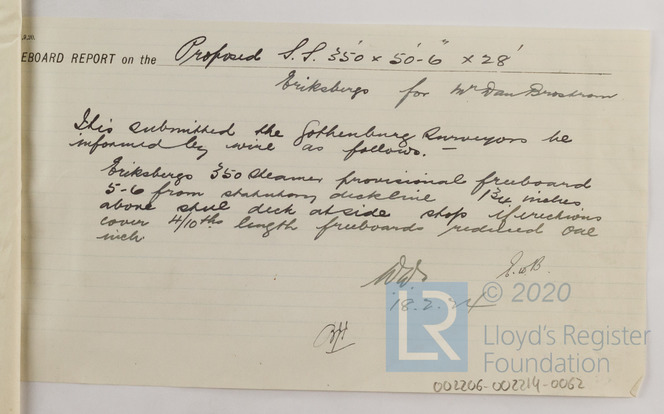 EBOARD REPORT on the Proposed S.S. 350' x 50'-6" x 28'
Eriksbergs for Mr Dan Brostrom
It is submitted the Gothenburg Surveyors be
informed by wire as follows. —
Eriksbergs 350 steamer provisional freeboard
5-6 from statutory deckline 1¾ inches
above steel deck at side stop if erections
cover 4/10ths length freeboards reduced one
inch
E.W.B.
18.2.24
© 2020
LR
Lloyd's Register
Foundation
002206-002214-0062